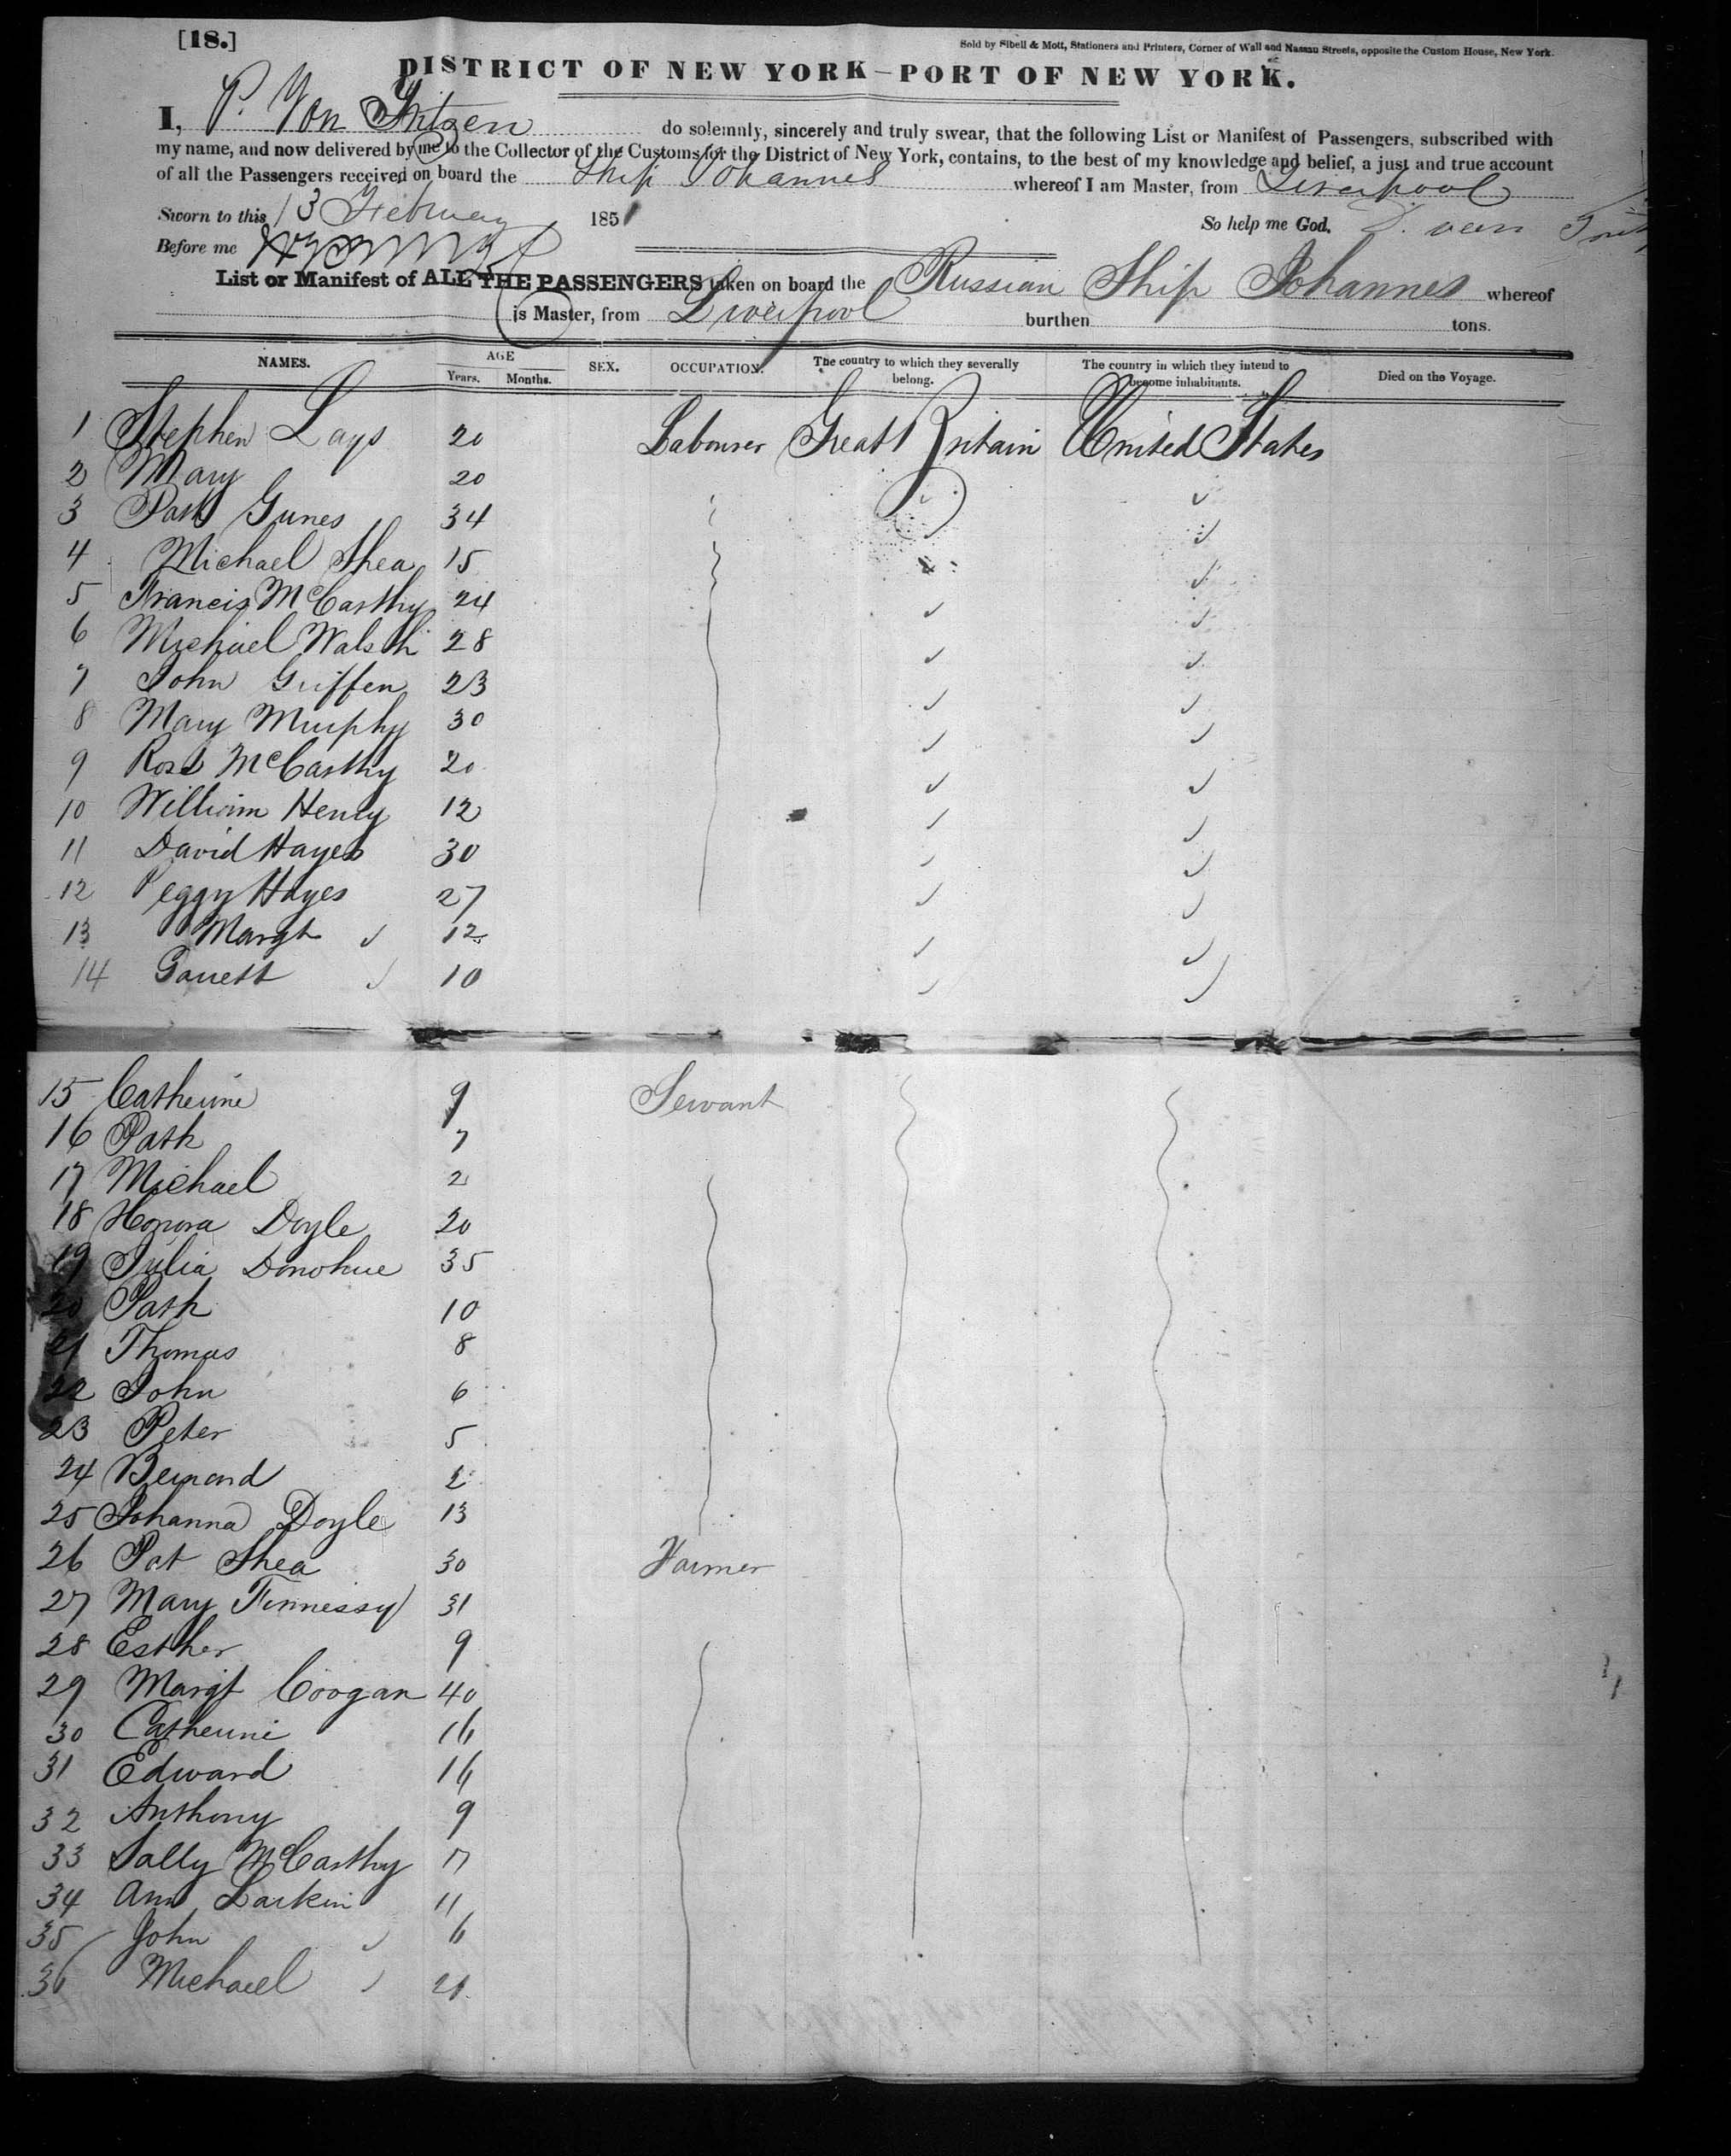 [18.]
Sold by Sibell & Mott, Stationers and Printers, Corner of Wall and Nassau Streets, opposite the Custom House, New York.
DISTRICT OF NEW YORK—PORT OF NEW YORK.
I, P. Von do solemnly, sincerely and truly swear, that the following List or Manifest of Passengers, subscribed with
my name, and now delivered by me to the Collector of the Customs for the District of New York, contains, to the best of my knowledge and belief, a just and true account
of all the Passengers received on board the Ship Johannes whereof I am Master, from Liverpool
Sworn to this 13 February 1851 So help me God.
Before me
List or Manifest of ALL THE PASSENGERS taken on board the Russian Ship Johannes whereof
is Master, from Liverpool burthen tons.
NAMES. AGE Years. Months. SEX. OCCUPATION. The country to which they severally belong. The country in which they intend to become inhabitants. Died on the Voyage.
1 Stephen Lays 20 Labourer Great Britain United States
2 Mary 20
3 Patk Gunes 34
4 Michael Shea 15
5 Francis McCarthy 24
6 Michael Walsh 28
7 John Griffen 23
8 Mary Murphy 30
9 Rose McCarthy 20
10 William Henry 12
11 David Hayes 30
12 Peggy Hayes 27
13 Margt 12
14 Garrett 10
15 Catherine 9 Servant
16 Patk 7
17 Michael 2
18 Honora Doyle 20
19 Julia Donohue 35
20 Patk 10
21 Thomas 8
22 John 6
23 Peter 5
24 Bernard 2
25 Johanna Doyle 13
26 Pat Shea 30 Farmer
27 Mary Finnessy 31
28 Esther 9
29 Margt Coogan 40
30 Catherine 16
31 Edward 14
32 Anthony 9
33 Sally McCarthy 17
34 Ann Larkin 11
35 John 6
36 Michael 21